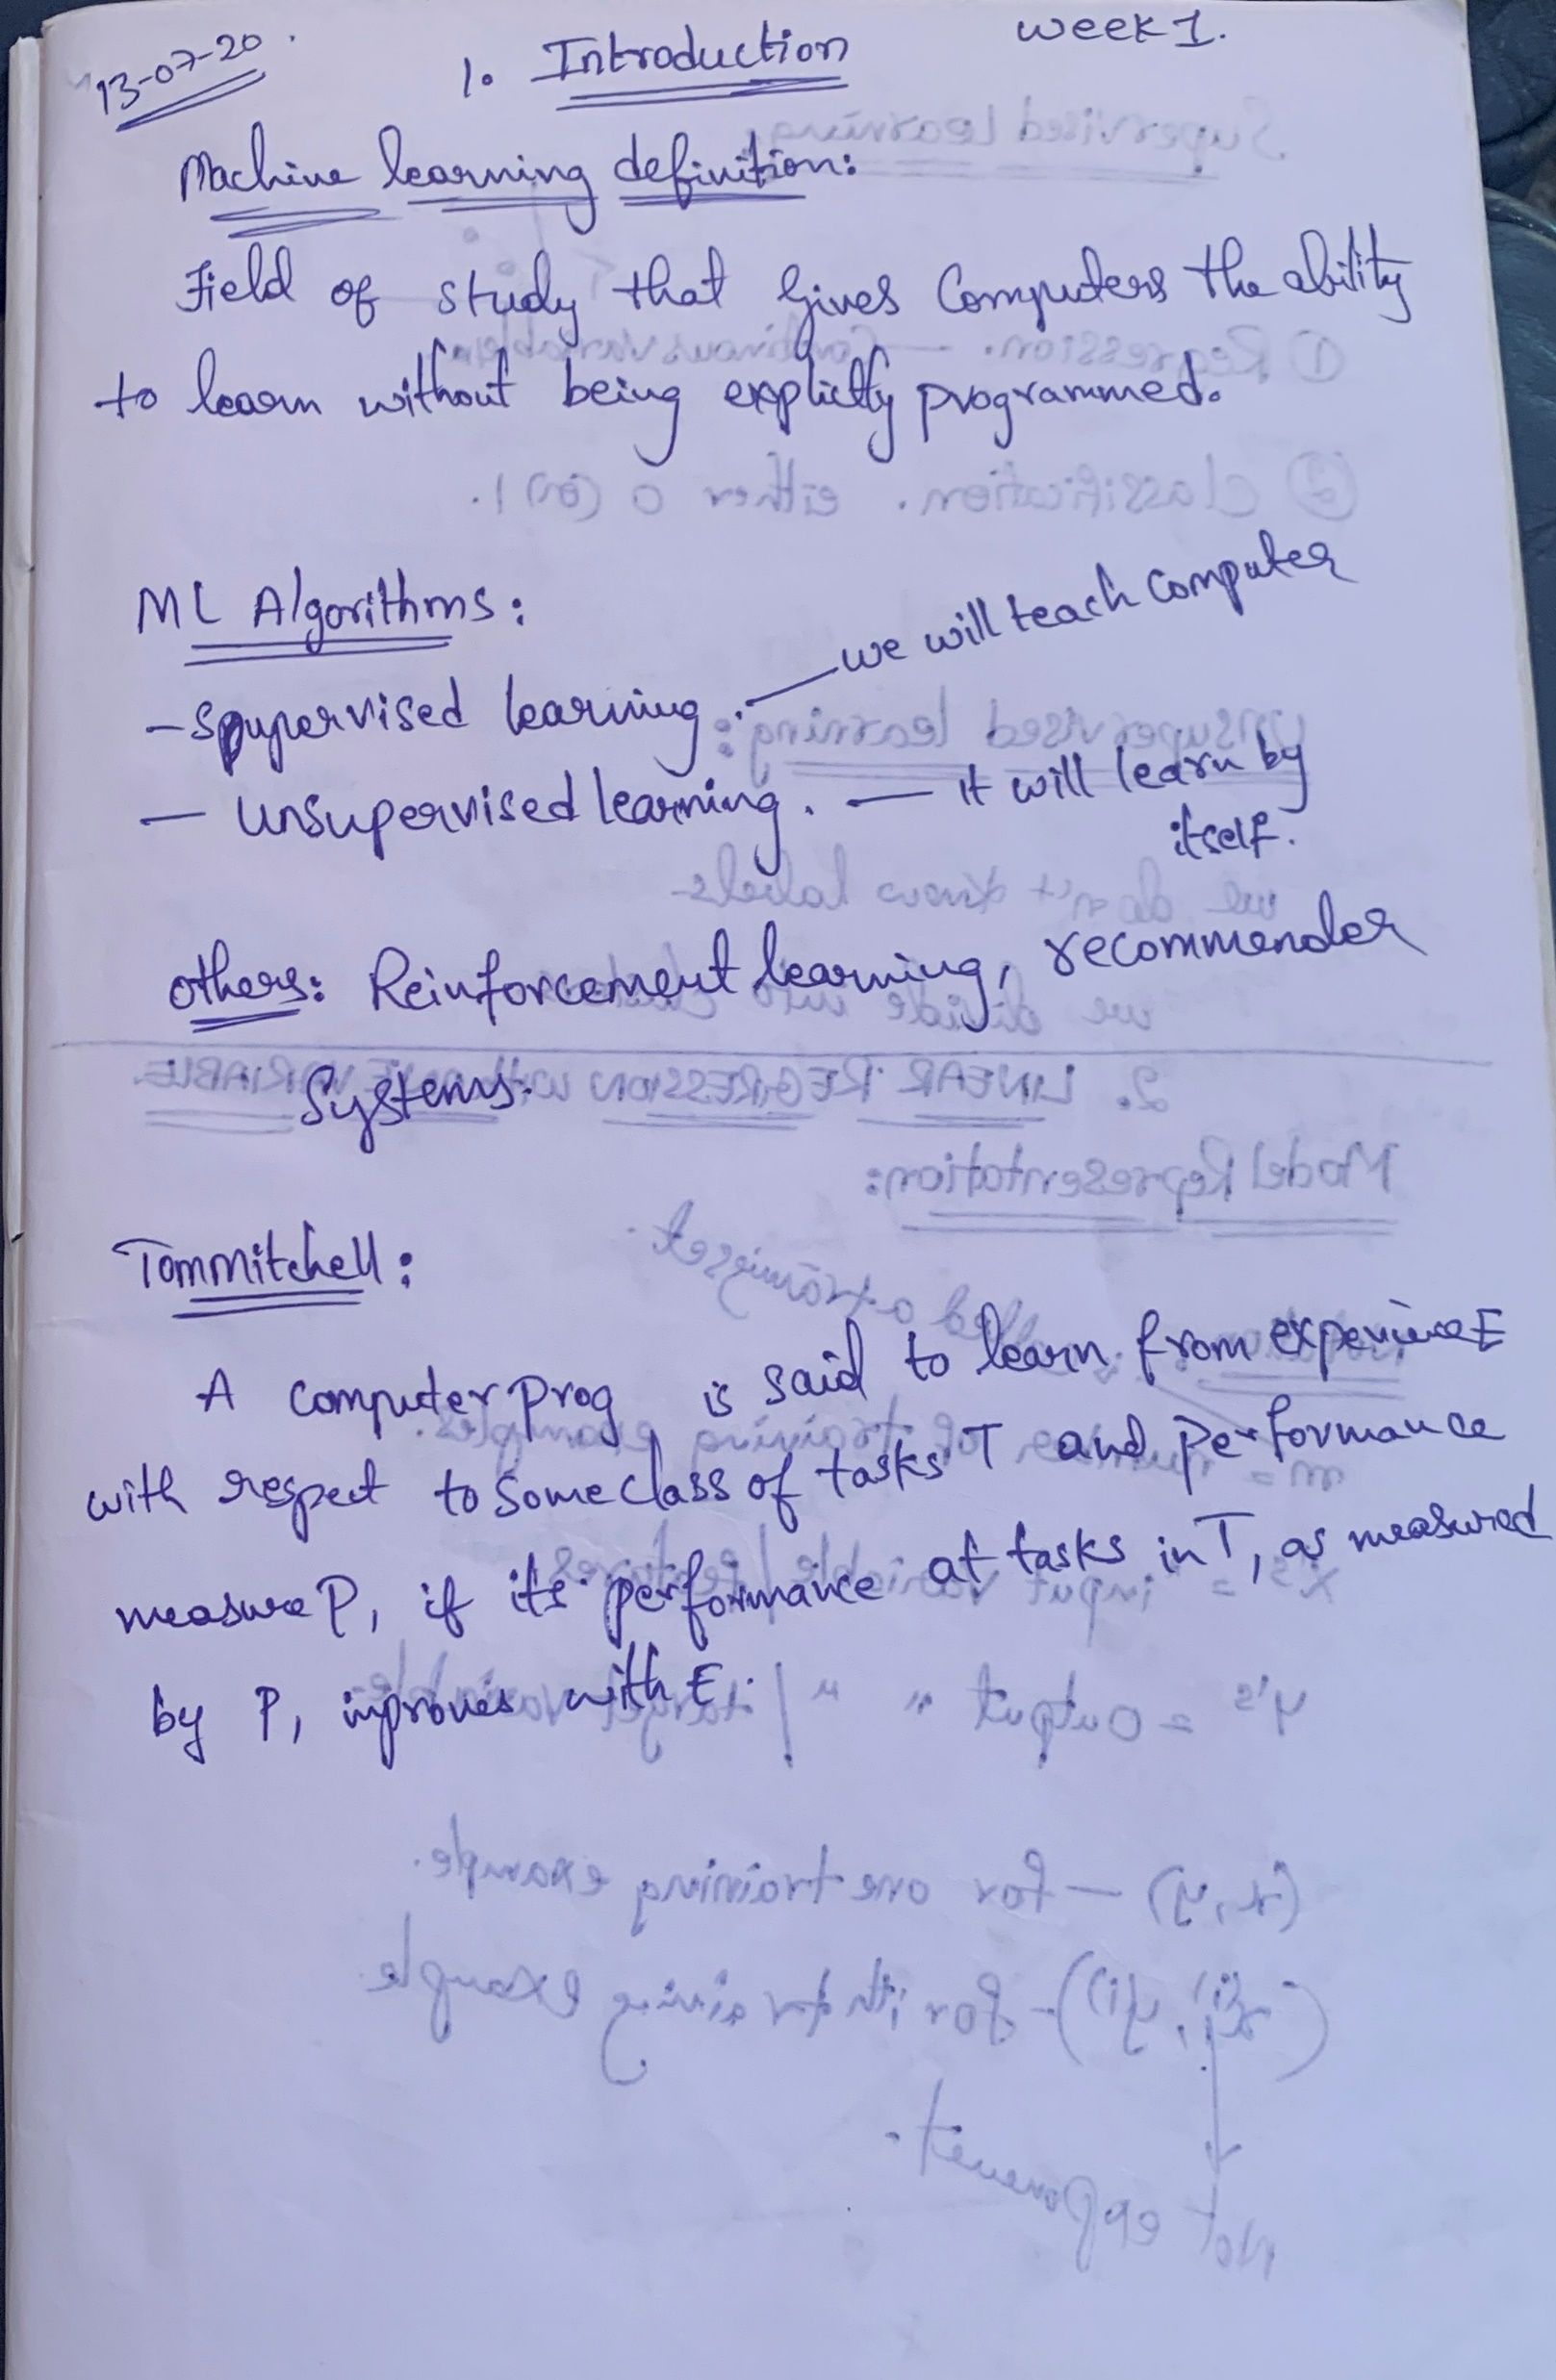 13-07-20.
1. Introduction
week 1.
Machine learning definition:
Field of study that gives Computers the ability
to learn without being explicitly programmed.
ML Algorithms:
we will teach computer
- Supervised learning.
- Unsupervised learning. — it will learn by
itself.
others: Reinforcement learning, recommender
Systems.
Tom Mitchell:
A computer prog is said to learn from experience E
with respect to some class of tasks T and performance
measure P, if its performance at tasks in T, as measured
by P, inproves with E.